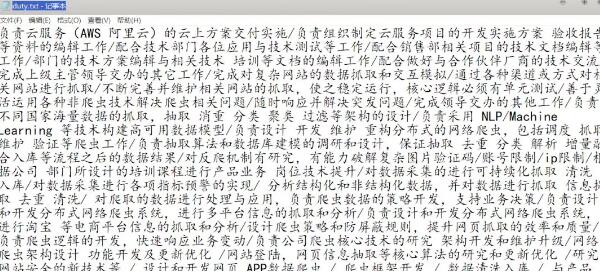 duty.txt - 记事本
文件(F) 编辑(E) 格式(O) 查看(V) 帮助(H)
负责云服务（AWS 阿里云）的云上方案交付实施/负责组织制定云服务项目的开发实施方案 验收报告
等资料的编辑工作/配合技术部门各位应用与技术测试等工作/配合销售部相关项目的技术文档编辑等
工作/部门的技术方案编辑与相关技术 培训等文档的编辑工作/配合做好与合作伙伴厂商的技术交流
完成上级主管领导交办的其它工作/完成对复杂网站的数据抓取和交互模拟/通过各种渠道或方式对相
关网站进行抓取/不断完善并维护相关网站的抓取，使之稳定运行，核心逻辑必须有单元测试/善于灵
活运用各种非爬虫技术解决爬虫相关问题/随时响应并解决突发问题/完成领导交办的其他工作/负责
不同国家海量数据的抓取，抽取 消重 分类 聚类 过滤等架构的设计/负责采用 NLP/Machine
Learning 等技术构建高可用数据模型/负责设计 开发 维护 重构分布式的网络爬虫，包括调度 抓取
维护 验证等爬虫工作/负责抽取算法和数据库建模的调研和设计，保证抽取 去重 分类 解析 增量融
合入库等流程之后的数据结果/对反爬机制有研究，有能力破解复杂图片验证码/账号限制/ip限制/根
据公司 部门所设计的培训课程进行产品业务 岗位技术提升/对数据采集的进行可持续化抓取 清洗
入库/对数据采集进行各项指标预警的实现/ 分析结构化和非结构化数据，并对数据进行抓取 信息抽
取 去重 清洗/ 对爬取的数据进行处理与应用，负责爬虫数据的策略开发，支持业务决策/负责设计
和开发分布式网络爬虫系统，进行多平台信息的抓取和分析/负责设计和开发分布式网络爬虫系统，
进行淘宝 等电商平台信息的抓取和分析/设计爬虫策略和防屏蔽规则，提升网页抓取的效率和质量/
负责爬虫逻辑的开发，快速响应业务变动/负责公司爬虫核心技术的研究 架构开发和维护升级/网络
爬虫架构设计 功能开发及更新优化 /网站登陆，网页信息抽取等核心算法的研究和更新优化/研究
网站安全的新技术等 / 设计和开发网页 APP数据爬虫 / 爬虫框架开发 / 数据清洗入库 / 与产品